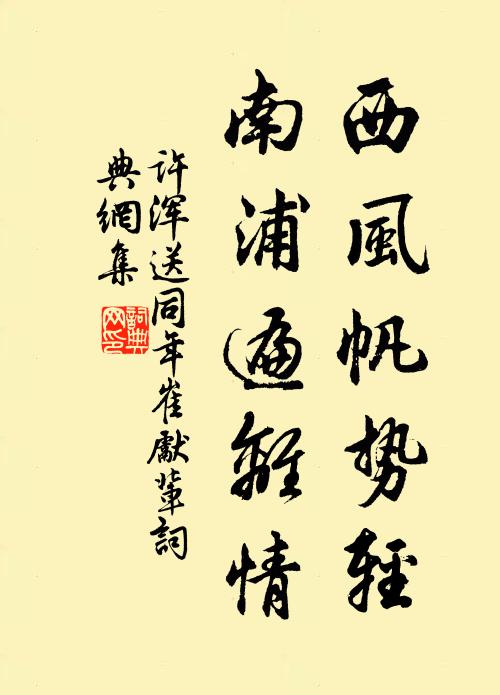 西風帆势輕
南浦遍離情
许渾送同年崔獻輩詞
典網集
詞典
网印